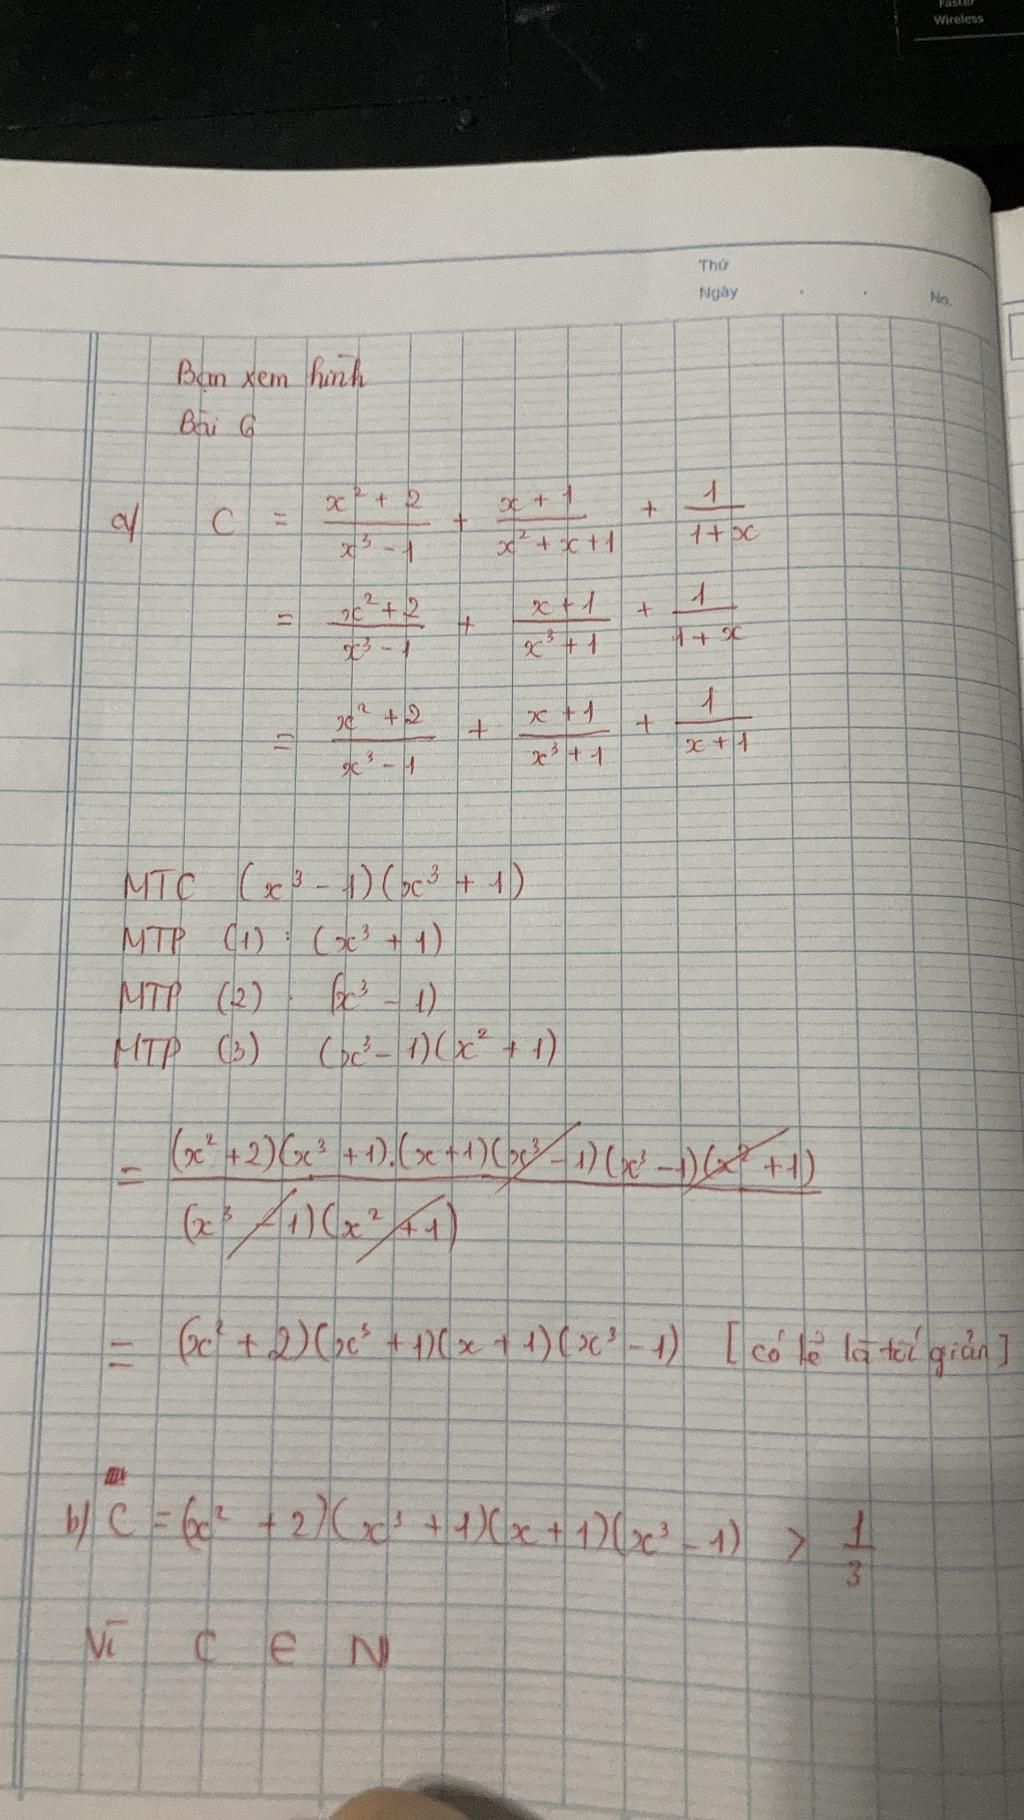 Faster
Wireless
Thứ
Ngày
No.
Bạn xem hình
Bài 6
a/ C = \frac{x² + 2}{x³ - 1} + \frac{x + 1}{x² + x + 1} + \frac{1}{1 + x}
= \frac{x² + 2}{x³ - 1} + \frac{x + 1}{x³ + 1} + \frac{1}{1 + x}
= \frac{x² + 2}{x³ - 1} + \frac{x + 1}{x³ + 1} + \frac{1}{x + 1}
MTC (x³ - 1)(x³ + 1)
MTP (1) : (x³ + 1)
MTP (2) : (x³ - 1)
MTP (3) (x³ - 1)(x² + 1)
= \frac{(x² + 2)(x³ + 1).(x + 1)(x³ - 1)(x³ - 1)(x² + 1)}{(x³ - 1)(x² + 1)}
= (x² + 2)(x³ + 1)(x + 1)(x³ - 1) [có lẽ là tối giản]
b/ C = (x² + 2)(x³ + 1)(x + 1)(x³ - 1) > \frac{1}{3}
Vì C ∈ N